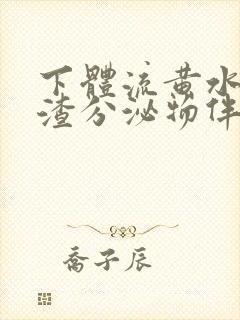 下體流黃水豆腐
渣分泌物伴
喬子辰